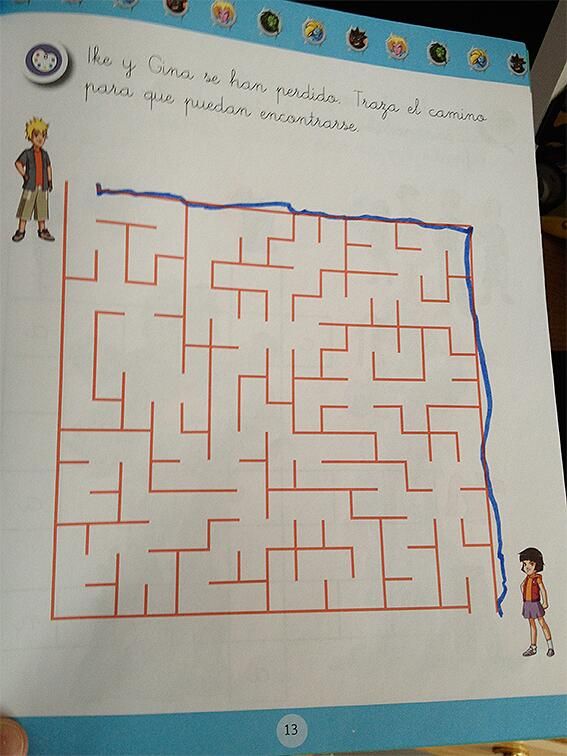 Ike y Gina se han perdido. Traza el camino
para que puedan encontrarse.
13